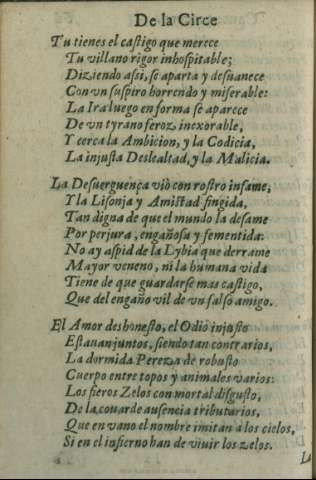 De la Circe
Tu tienes el castigo que merece
Tu villano rigor inhospitable;
Diziendo assi, se aparta y desuanece
Con vn suspiro horrendo y miserable:
La Ira luego en forma se aparece
De vn tyrano feroz, inexorable,
Y cerca la Ambicion, y la Codicia,
La injusta Deslealtad, y la Malicia.
La Desuerguença viò con rostro infame,
Y la Lisonja y Amistad fingida,
Tan digna de que el mundo la desame
Por perjura, engañosa y fementida:
No ay aspid de la Lybia que derrame
Mayor veneno, ni la humana vida
Tiene de que guardarse mas castigo,
Que del engaño vil de vn falso amigo.
El Amor deshonesto, el Odio injusto
Estauan juntos, siendo tan contrarios,
La dormida Pereza de robusto
Cuerpo entre topos y animales varios:
Los fieros Zelos con mortal disgusto,
De la couarde ausencia tributarios,
Que en vano el nombre imitan a los cielos,
Si en el infierno han de viuir los zelos.